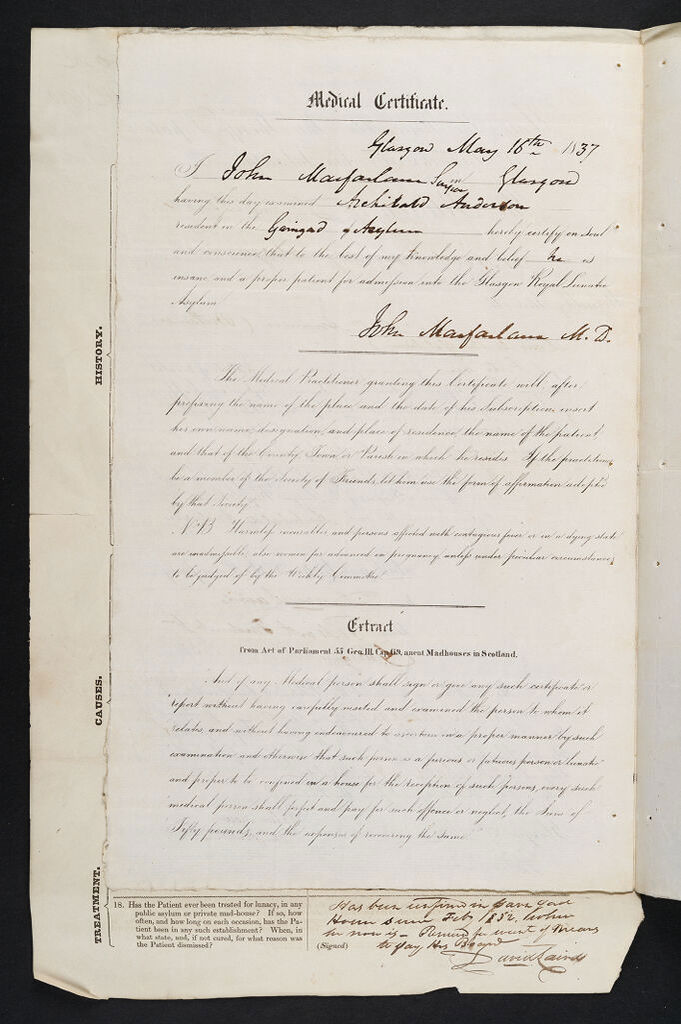 Medical Certificate.
Glasgow May 16th 1837
I John Macfarlane Surgeon in Glasgow
having this day examined Archibald Anderson
resident in the Asylum hereby certify on soul
and conscience, that to the best of my knowledge and belief he is
insane and a proper patient for admission into the Glasgow Royal Lunatic
Asylum
John Macfarlane M.D.
The Medical Practitioner granting this Certificate will after
prefixing the name of the place and the date of his Subscription, insert
his own name, designation, and place of residence, the name of the patient,
and that of the County, Town or Parish in which he resides. If the practitioner
be a member of the Society of Friends, let him use the form of affirmation adopted
by that Society
N.B. Harmless incurables and persons affected with contagious fever or in a dying state
are inadmissible; also women far advanced in pregnancy, unless under peculiar circumstances,
to be judged of by the Weekly Committee
Extract
from Act of Parliament 55 Geo. III. Cap. 69, anent Madhouses in Scotland.
And if any Medical person shall sign or give any such certificate or
report without having carefully visited and examined the person to whom it
relates, and without having endeavoured to ascertain in a proper manner by such
examination and otherwise that such person is a furious or fatuous person or lunatic
and proper to be confined in a house for the reception of such persons, every such
medical person shall forfeit and pay for such offence or neglect, the Sum of
Fifty pounds, and the expenses of recovering the same.
HISTORY.
CAUSES.
TREATMENT.
18. Has the Patient ever been treated for lunacy, in any
public asylum or private mad-house? If so, how
often, and how long on each occasion, has the Pa-
tient been in any such establishment? When, in
what state, and, if not cured, for what reason was
the Patient dismissed?
Has been confined in
House since Feb 1832, where
he now is - Removed for want of Means
(Signed) to pay his Board
David Laird